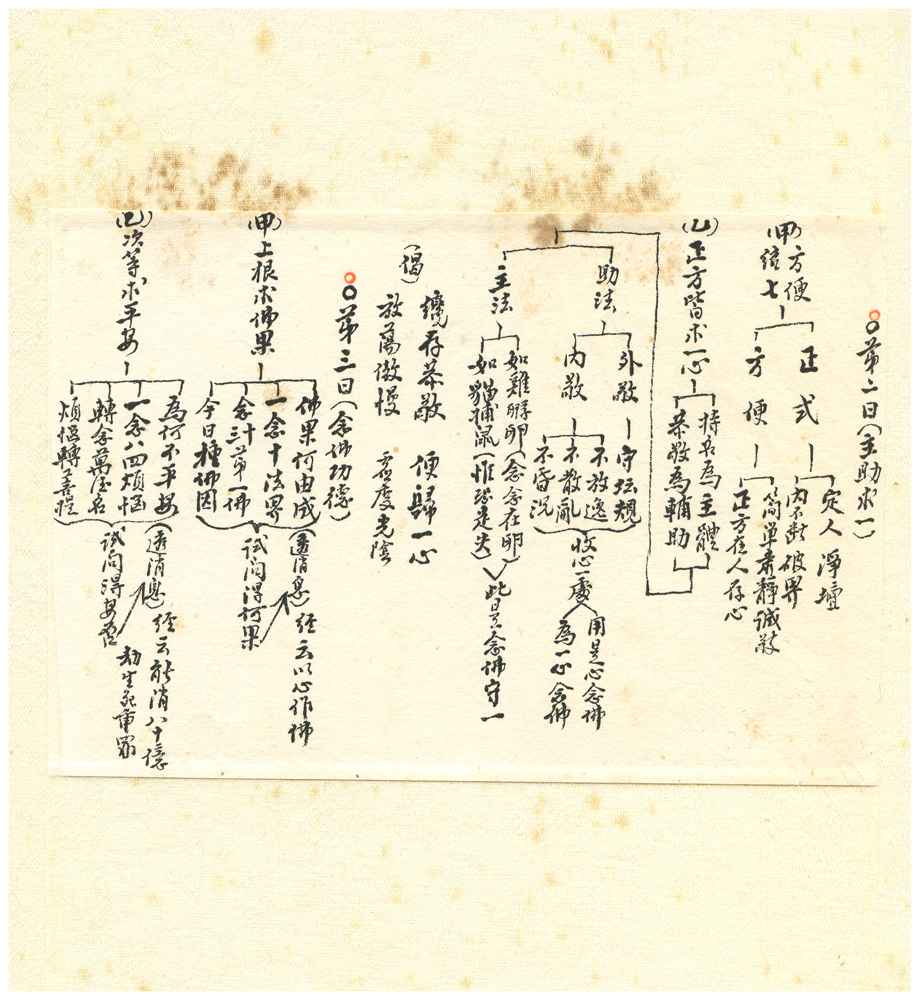 ○第二日(主助求一)
(甲)方便
結七
正式
定人 淨壇
內不出 破界
方便
簡單肅靜誠敬
正方在人存心
(乙)正方皆求一心
持名為主體
恭敬為輔助
助法
外敬
守坛規
內敬
不放逸
不散亂
不昏沉
收心一處
用是心念佛
為一心念佛
主法
如雞孵卵(念念在卵)
如貓捕鼠(惟恐走失)
此是念佛守一
(偈)
纔存恭敬 便歸一心
放蕩傲慢 虛度光陰
○第三日(念佛功德)
(甲)上根求佛果
佛果何由成
一念十法界
念三十第一佛
今日種佛因
(透消息)經云以心作佛
試問得何果
(乙)次等求平安
為何不平安
一念八四煩惱
轉念萬德名
煩惱轉菩提
(透消息)經云能消八十億
劫生死重罪
試問得安否